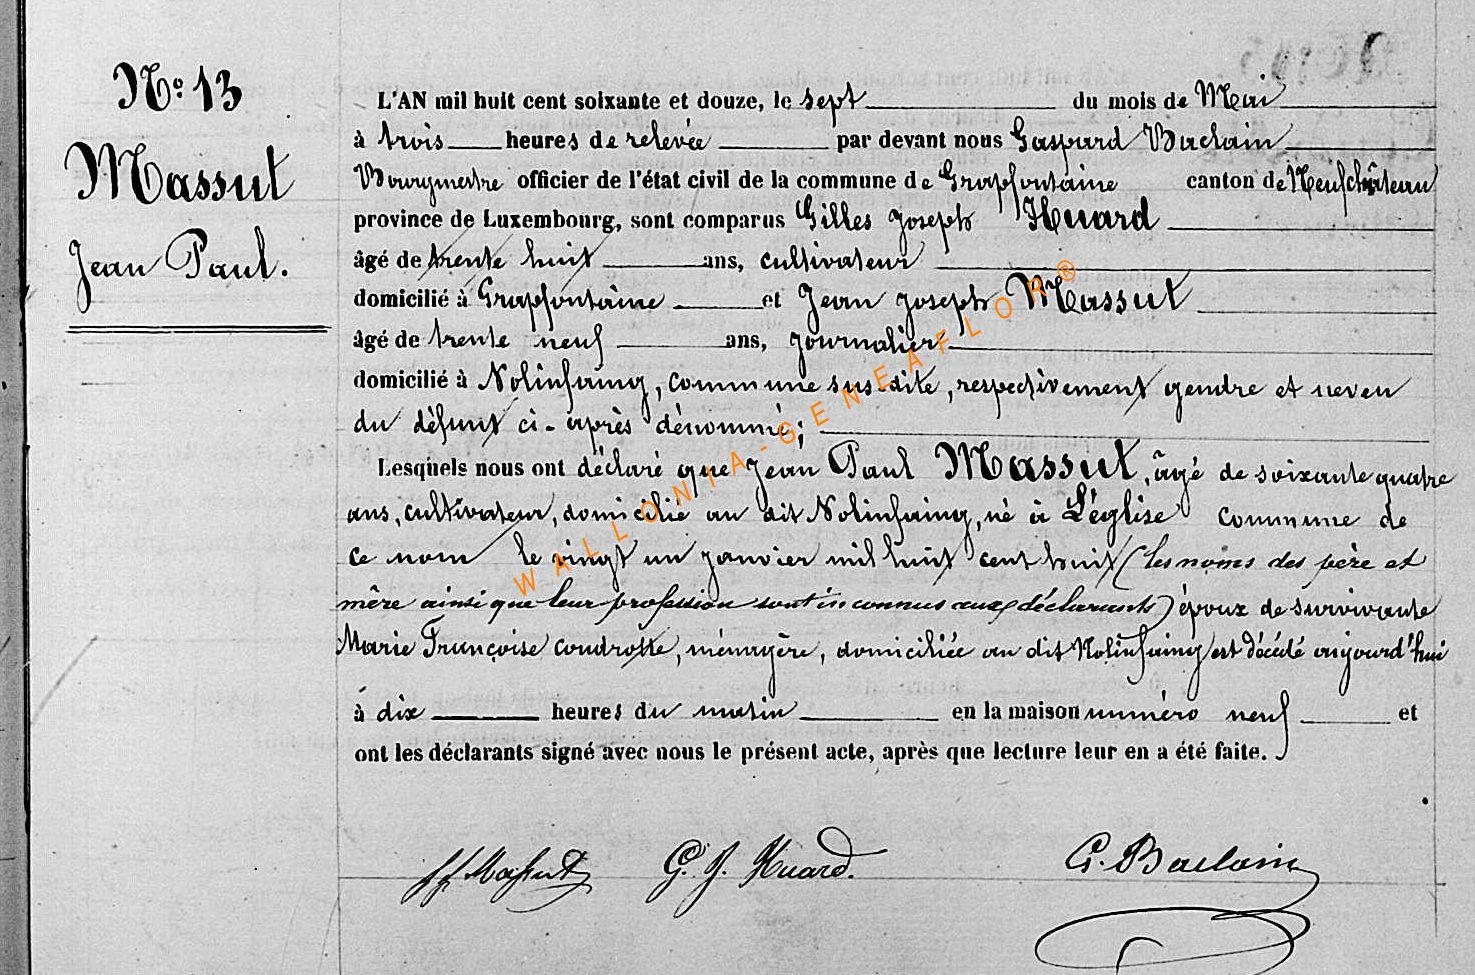 N° 13
Massut
Jean Paul.
L'AN mil huit cent soixante et douze, le sept du mois de Mai
à trois heures de relevée par devant nous Gaspard Baclain
Bourgmestre officier de l'état civil de la commune de Grapfontaine canton de Neufchâteau
province de Luxembourg, sont comparus Gilles Joseph Huard
âgé de trente huit ans, cultivateur
domicilié à Grapfontaine et Jean Joseph Massut
âgé de trente neuf ans, journalier
domicilié à Nolinfaing, commune susdite, respectivement gendre et neveu
du défunt ci-après dénommé;
Lesquels nous ont déclaré que Jean Paul Massut, âgé de soixante quatre
ans, cultivateur, domicilié au dit Nolinfaing, né à Léglise commune de
ce nom le vingt un janvier mil huit cent huit (les noms des père et
mère ainsi que leur profession sont inconnus aux déclarants) époux de survivante
Marie Françoise Coudrotte, ménagère, domiciliée au dit Nolinfaing est décédé aujourd'hui
à dix heures du matin en la maison numéro neuf et
ont les déclarants signé avec nous le présent acte, après que lecture leur en a été faite.
JJ Massut G. J. Huard. G. Baclain
WALLONIA-GENEAFLOR®